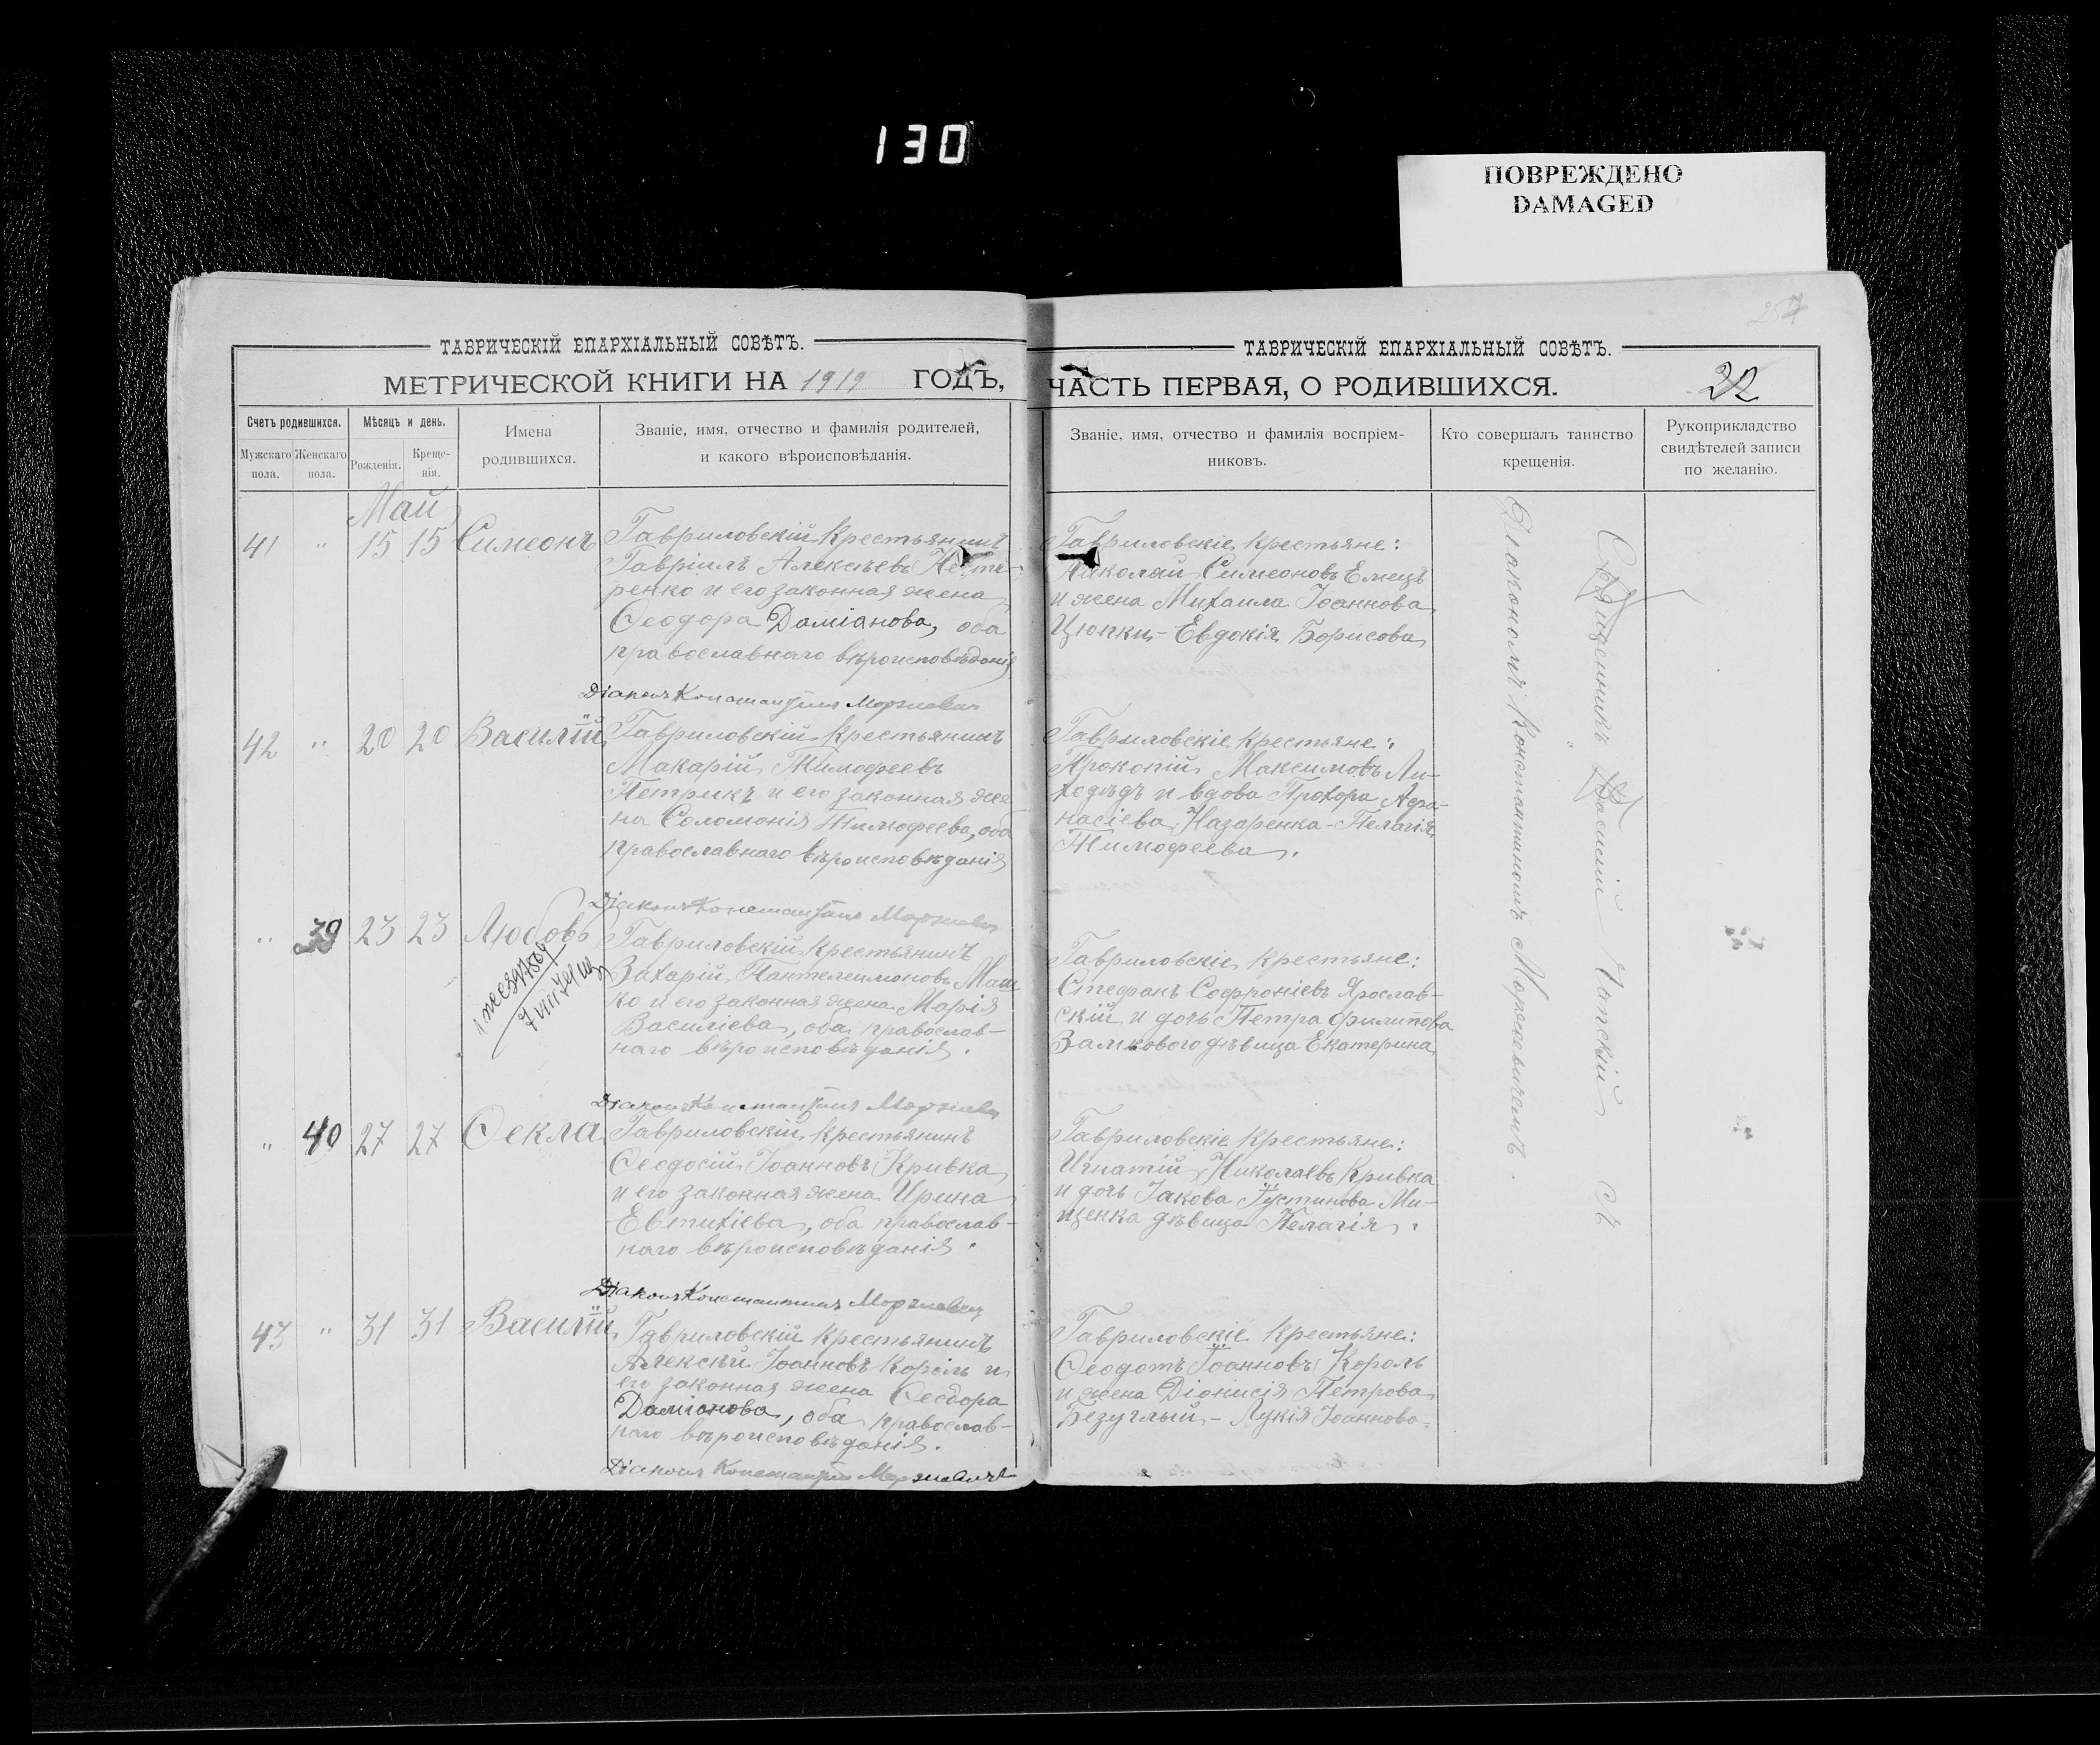 130
ПОВРЕЖДЕНО
DAMAGED
ТАВРИЧЕСКІЙ ЕПАРХІАЛЬНЫЙ СОВѢТЪ.
МЕТРИЧЕСКОЙ КНИГИ НА 1919 ГОДЪ,
Счетъ родившихся.
Мужскаго пола.
Женскаго пола.
Мѣсяцъ и день.
Рожденія.
Креще-
нія.
Имена
родившихся.
Званіе, имя, отчество и фамилія родителей,
и какого вѣроисповѣданія.
Май
41 " 15 15 Симеонъ
Гавриловскій крестьянинъ
Гавріилъ Алексѣевъ Несте-
ренко и его законная жена
Ѳеодора Даміанова, оба
православнаго вѣроисповѣданія
Діаконъ Константинъ
42 " 20 20 Василій
Гавриловскій крестьянинъ
Макарій Тимофеевъ
Петрикъ и его законная же
на Соломонія Тимофеева, оба
православнаго вѣроисповѣданія
Діаконъ Константинъ
" 39 23 23 Любовь
Гавриловскій крестьянинъ
Захарій Пантелеимоновъ Маш
ко и его законная жена Марія
Василіева, оба православ-
наго вѣроисповѣданія.
Діаконъ Константинъ
" 40 27 27 Ѳекла
Гавриловскій крестьянинъ
Ѳеодосій Іоанновъ Кривка
и его законная жена Ирина
Евтихіева, оба православ-
наго вѣроисповѣданія.
Діаконъ Константинъ
43 " 31 31 Василій
Гавриловскій крестьянинъ
Алексѣй Іоанновъ Король и
его законная жена Ѳеодора
Даміанова, оба православ-
наго вѣроисповѣданія.
Діаконъ Константинъ
ТАВРИЧЕСКІЙ ЕПАРХІАЛЬНЫЙ СОВѢТЪ.
ЧАСТЬ ПЕРВАЯ, О РОДИВШИХСЯ.
32
Званіе, имя, отчество и фамилія воспріем-
никовъ.
Кто совершалъ таинство
крещенія.
Рукоприкладство
свидѣтелей записи
по желанію.
Гавриловскіе крестьяне:
Николай Симеоновъ Емецъ
и жена Михаила Іоаннова
Цюпки - Евдокія Борисова
Гавриловскіе крестьяне:
Прокопій Максимовъ Ли-
ходѣдъ и вдова Прохора Афа-
насіева Назаренка - Пелагія
Тимофеева.
Гавриловскіе крестьяне:
Стефанъ Софроніевъ Ярослав-
скій и дочь Петра Филипова
Замкового дѣвица Екатерина
Гавриловскіе крестьяне:
Игнатій Николаевъ Кривка
и дочь Іакова Іустинова Ми-
щенка дѣвица Пелагія.
Гавриловскіе крестьяне:
Ѳеодотъ Іоанновъ Король
и жена Діонисія Петрова
Безуглый - Лукія Іоаннова.
Священникъ Василій съ
Діакономъ Константиномъ